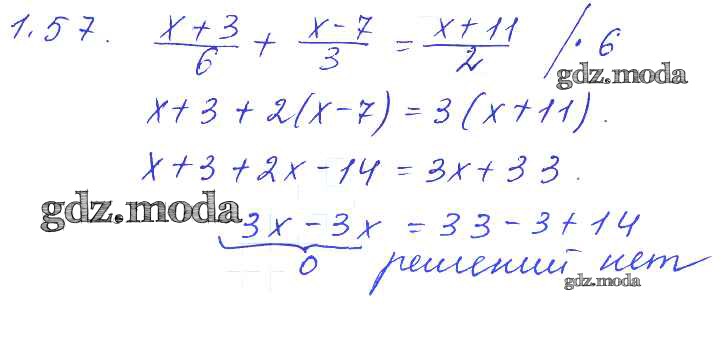 1.57. (x+3)/6 + (x-7)/3 = (x+11)/2 /·6
gdz.moda
x+3+2(x-7)=3(x+11).
x+3+2x-14=3x+33.
gdz.moda
3x-3x = 33-3+14
0 решений нет
gdz.moda